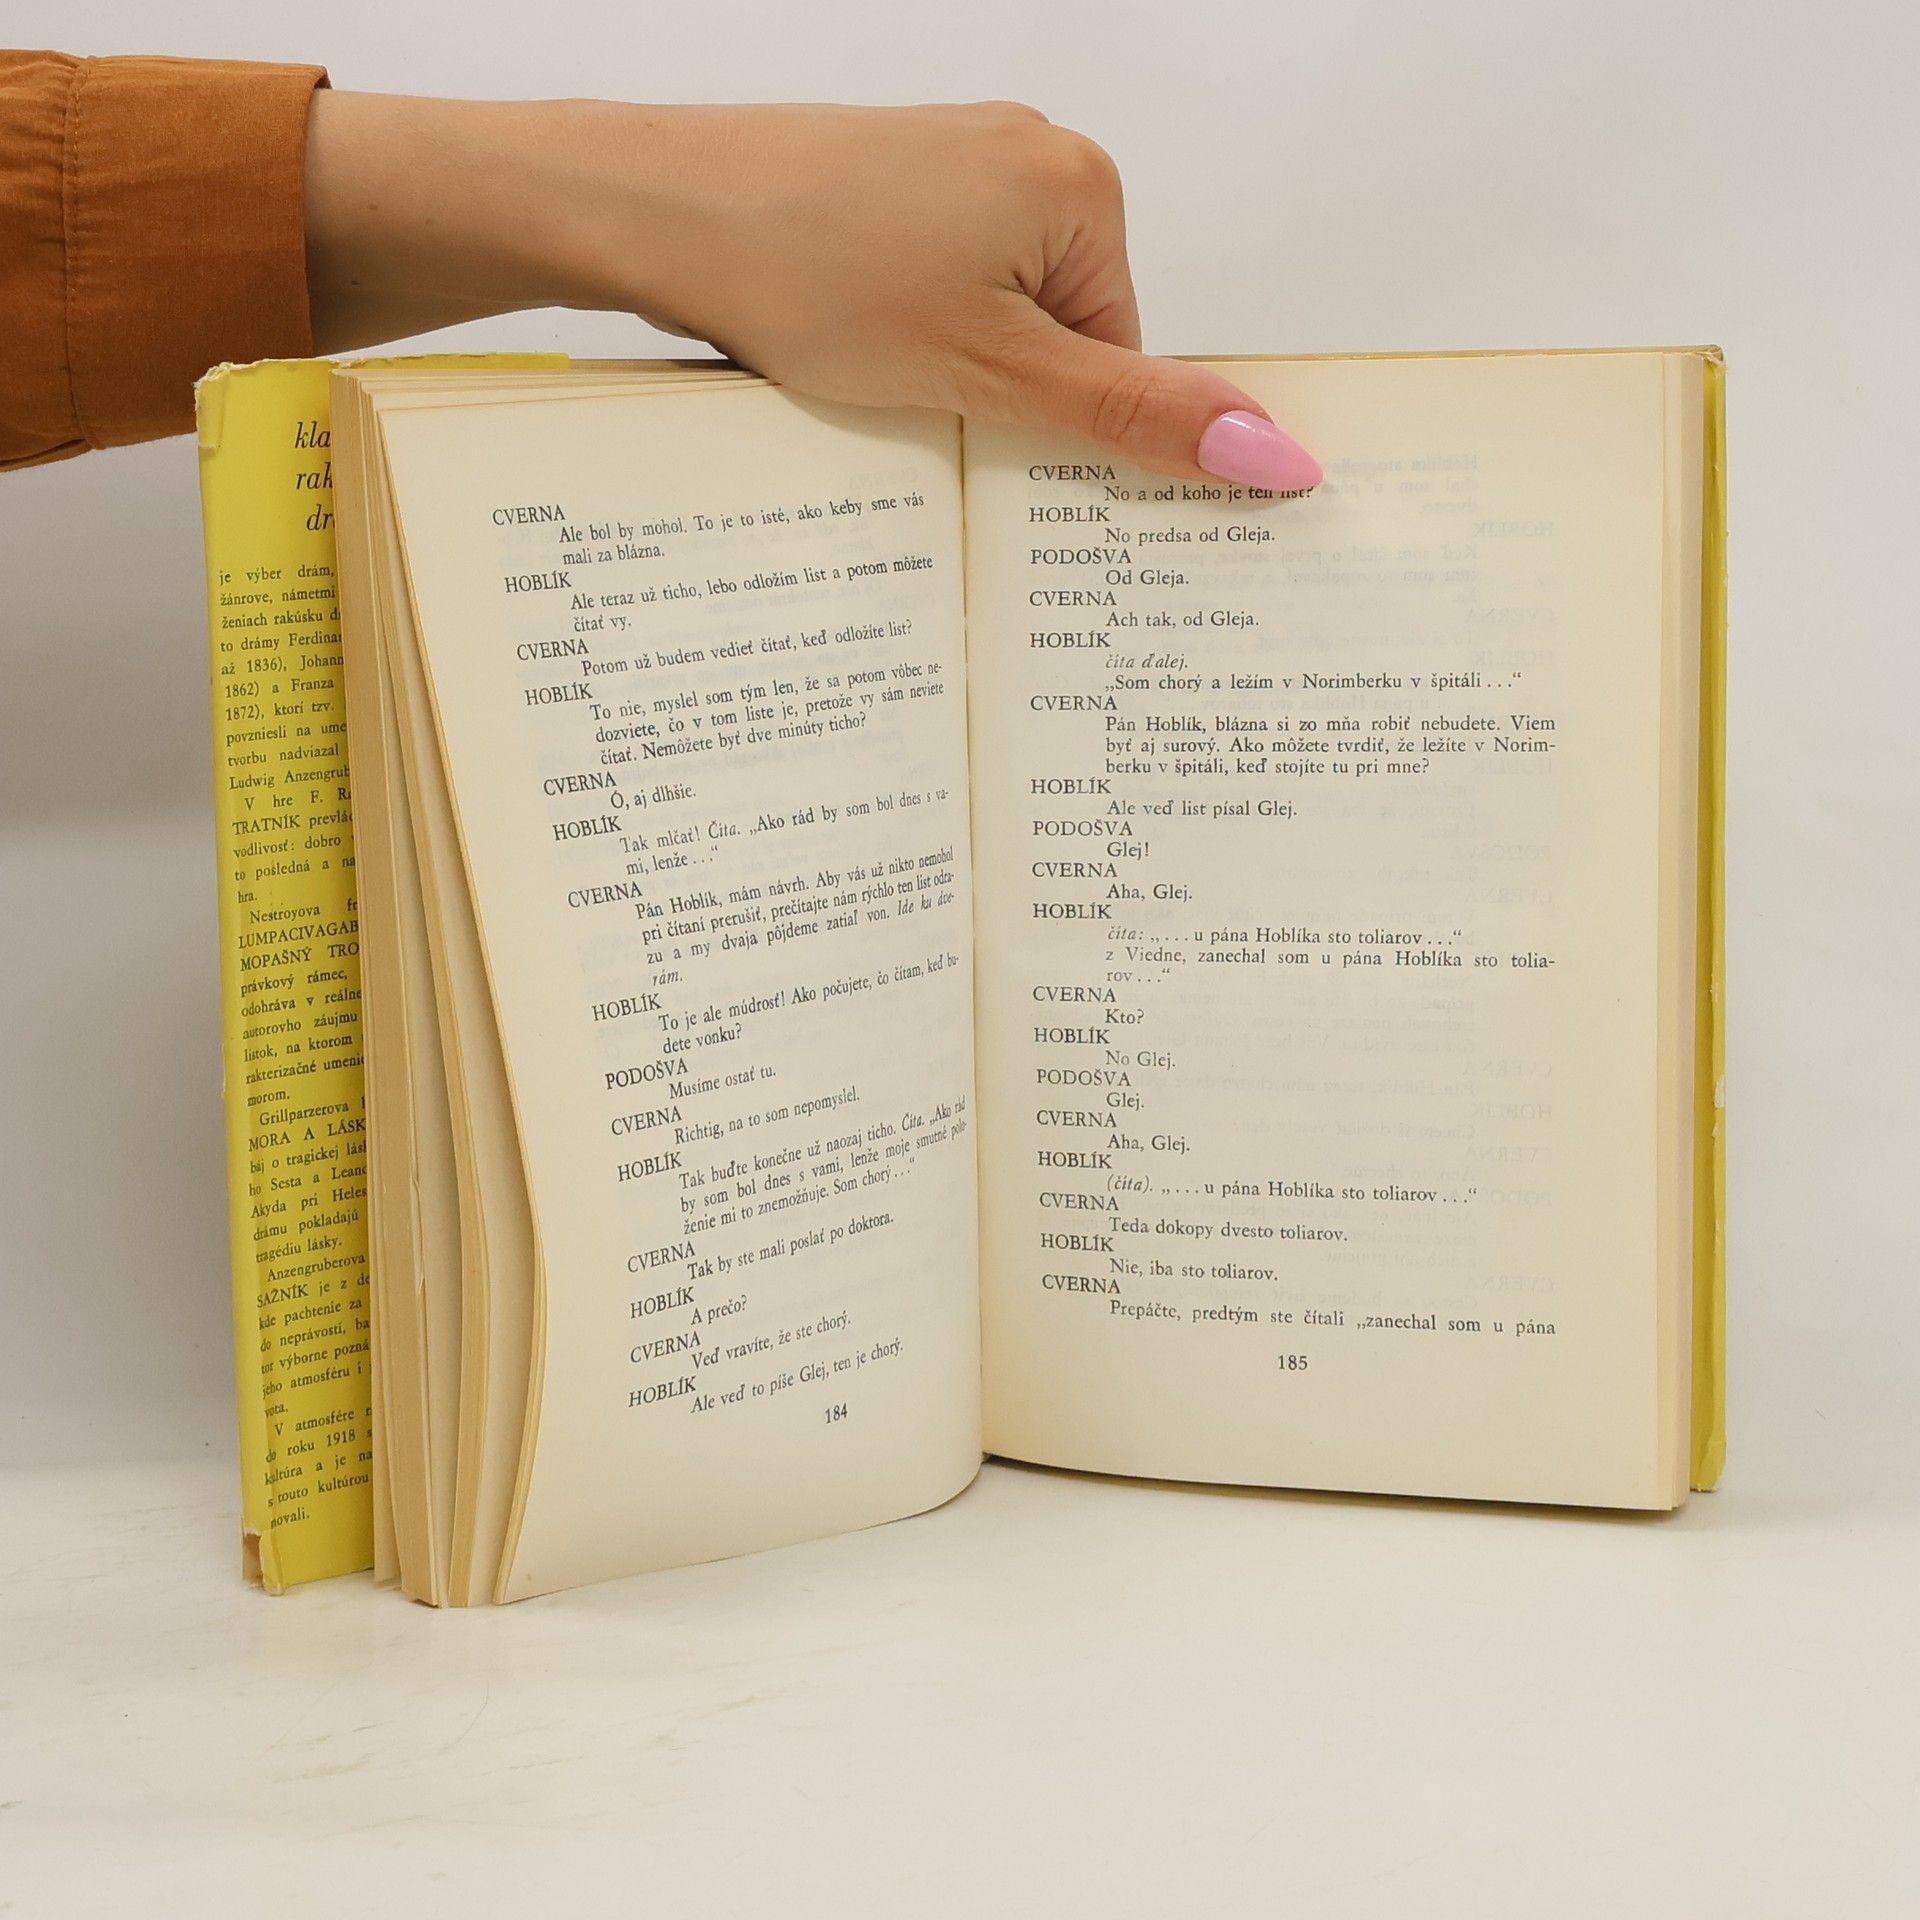 je výber drám,
žánrove, námetmi
ženiach rakúsku
to drámy
až 1836), Johann
1862) a Franza
1872), ktorí tzv.
povzniesli na
tvorbu nadviazal
Ludwig
V hre F.
TRATNÍK
vodlivosť: dobro
to posledná a
hra.
Nestroyova
MOPAŠNÝ
právkový rámec,
odohráva v
autorovho záujmu
lístok, na ktorom
rakterizačné
morom.
Grillparzerova
MORA A
báj o tragickej
ho Sesta a
Akyda pri
drámu pokladajú
tragédiu lásky.
Anzengruberova
SAŽNÍK je z
kde pachtenie za
do neprávostí,
tor výborne
jeho atmosféru i
vota.
V atmosfére
do roku 1918
kultúra a je
s touto kultúrou
movali.
CVERNA
Ale bol by mohol. To je to isté, ako keby sme vás
mali za blázna.
HOBLÍK
Ale teraz už ticho, lebo odložím list a potom môžete
čítať vy.
CVERNA
Potom už budem vedieť čítať, keď odložíte list?
HOBLÍK
To nie, myslel som tým len, že sa potom vôbec ne-
dozviete, čo v tom liste je, pretože vy sám neviete
čítať. Nemôžete byť dve minúty ticho?
CVERNA
Ó, aj dlhšie.
HOBLÍK
Tak mlčať! Číta. „Ako rád by som bol dnes s va-
mi, lenže . . .“
CVERNA
Pán Hoblík, mám návrh. Aby vás už nikto nemohol
pri čítaní prerušiť, prečítajte nám rýchlo ten list odra-
zu a my dvaja pôjdeme zatiaľ von. Ide ku dve-
rám.
HOBLÍK
To je ale múdrosť! Ako počujete, čo čítam, keď bu-
dete vonku?
PODOŠVA
Musíme ostať tu.
CVERNA
Richtig, na to som nepomyslel.
HOBLÍK
Tak buďte konečne už naozaj ticho. Číta. „Ako rád
by som bol dnes s vami, lenže moje smutné polo-
ženie mi to znemožňuje. Som chorý . . .“
CVERNA
Tak by ste mali poslať po doktora.
HOBLÍK
A prečo?
CVERNA
Veď vravíte, že ste chorý.
HOBLÍK
Ale veď to píše Glej, ten je chorý.
184
CVERNA
No a od koho je ten list?
HOBLÍK
No predsa od Gleja.
PODOŠVA
Od Gleja.
CVERNA
Ach tak, od Gleja.
HOBLÍK
číta ďalej.
„Som chorý a ležím v Norimberku v špitáli . . .“
CVERNA
Pán Hoblík, blázna si zo mňa robiť nebudete. Viem
byť aj surový. Ako môžete tvrdiť, že ležíte v Norim-
berku v špitáli, keď stojíte tu pri mne?
HOBLÍK
Ale veď list písal Glej.
PODOŠVA
Glej!
CVERNA
Aha, Glej.
HOBLÍK
číta: „ . . . u pána Hoblíka sto toliarov . . .“
z Viedne, zanechal som u pána Hoblíka sto tolia-
rov . . .“
CVERNA
Kto?
HOBLÍK
No Glej.
PODOŠVA
Glej.
CVERNA
Aha, Glej.
HOBLÍK
(číta). „ . . . u pána Hoblíka sto toliarov . . .“
CVERNA
Teda dokopy dvesto toliarov.
HOBLÍK
Nie, iba sto toliarov.
CVERNA
Prepáčte, predtým ste čítali „zanechal som u pána
185